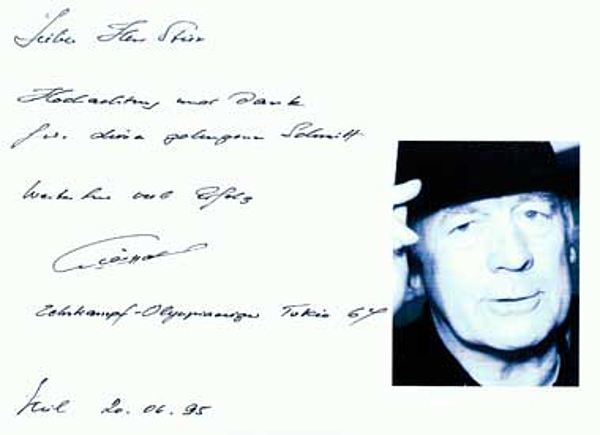 Lieber Herr Stier
Hochachtung und Dank
für diesen gelungenen Schnitt
Weiterhin viel Erfolg
Zehnkampf-Olympiasieger Tokio 64
Kiel 20.06.95